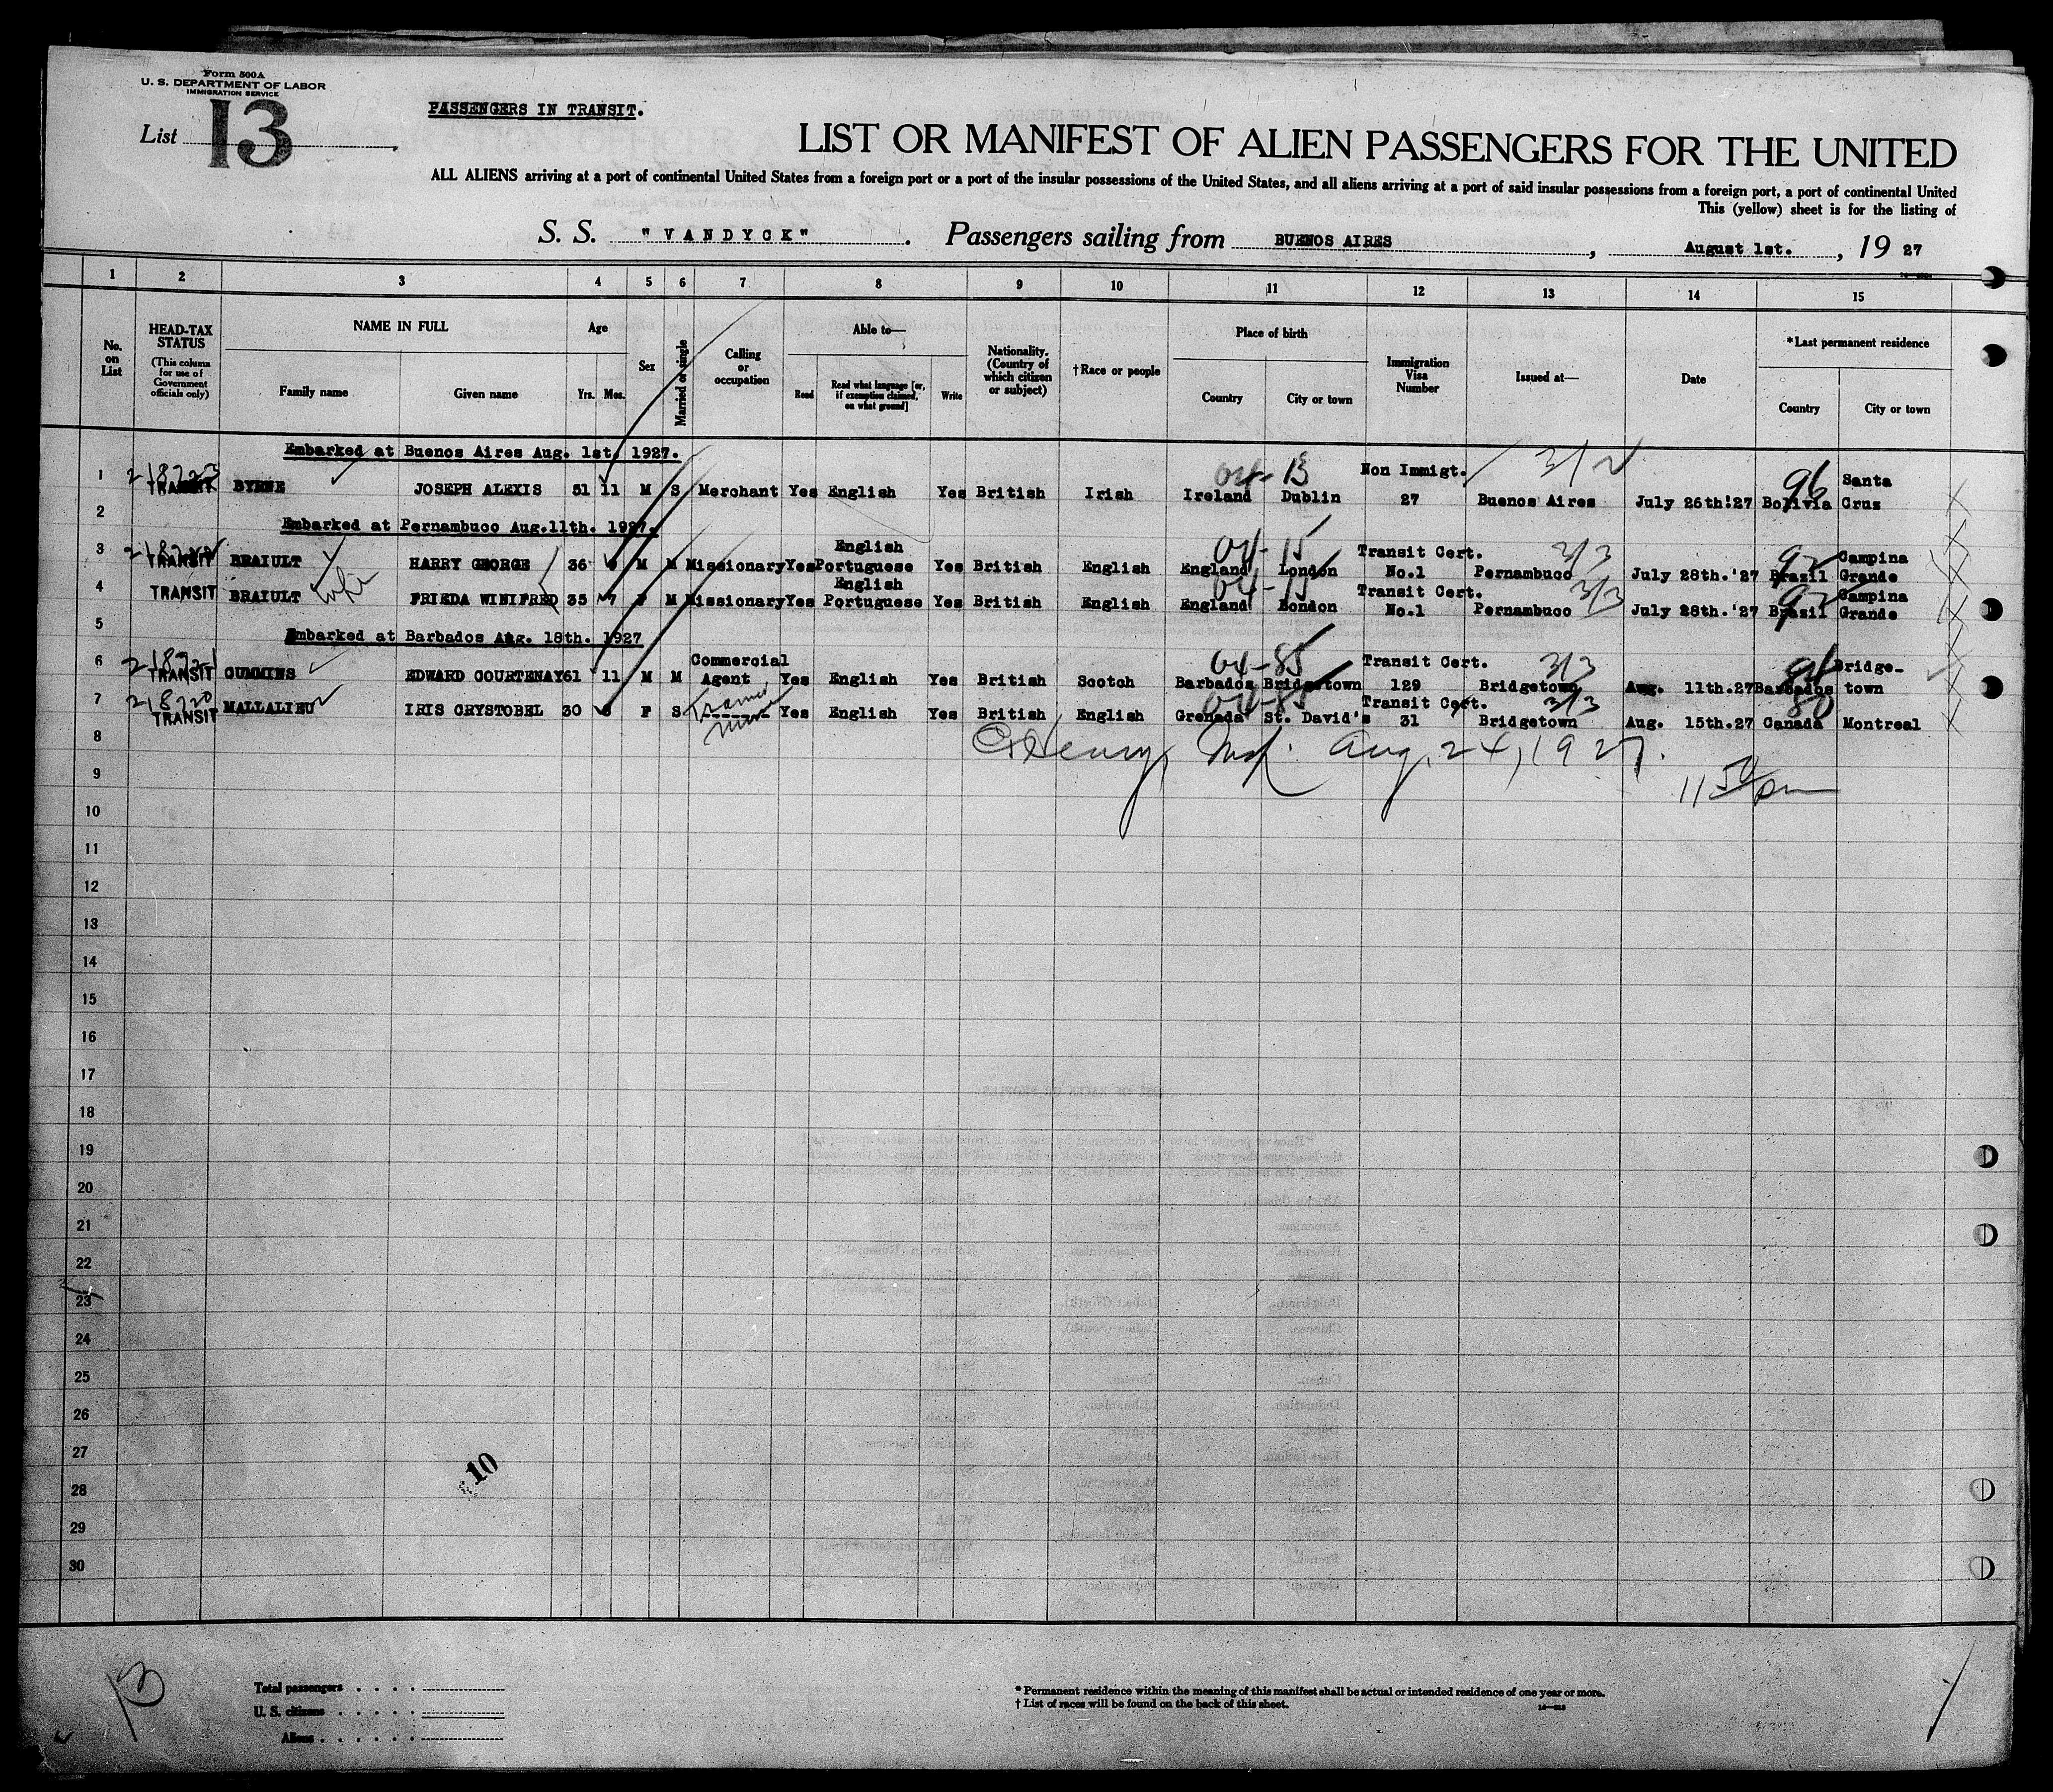 Form 500A
U. S. DEPARTMENT OF LABOR
IMMIGRATION SERVICE
List 13
PASSENGERS IN TRANSIT.
LIST OR MANIFEST OF ALIEN PASSENGERS FOR THE UNITED
ALL ALIENS arriving at a port of continental United States from a foreign port or a port of the insular possessions of the United States, and all aliens arriving at a port of said insular possessions from a foreign port, a port of continental United
This (yellow) sheet is for the listing of
S. S. "VANDYCK". Passengers sailing from BUENOS AIRES, August 1st., 19 27
1 2 3 4 5 6 7 8 9 10 11 12 13 14 15
No. on List
HEAD-TAX STATUS (This column for use of Government officials only)
NAME IN FULL
Family name Given name
Age
Yrs. Mos.
Sex
Married or single
Calling or occupation
Able to—
Read Read what language [or, if exemption claimed, on what ground] Write
Nationality. (Country of which citizen or subject)
†Race or people
Place of birth
Country City or town
Immigration Visa Number
Issued at—
Date
*Last permanent residence
Country City or town
Embarked at Buenos Aires Aug. 1st. 1927.
218723 04-13 Non Immigt. 3/2 96 Santa
1 TRANSIT BYRNE JOSEPH ALEXIS 51 11 M S Merchant Yes English Yes British Irish Ireland Dublin 27 Buenos Aires July 26th.'27 Bolivia Cruz
2
Embarked at Pernambuco Aug.11th. 1927.
English 04-15 Transit Cert. 3/3 92 Campina
3 TRANSIT BRAIULT HARRY GEORGE 36 M M Missionary Yes Portuguese Yes British English England London No.1 Pernambuco July 28th.'27 Brazil Grande
wife English 04-15 Transit Cert. 3/3 92 Campina
4 TRANSIT BRAIULT FRIEDA WINIFRED 35 7 F M Missionary Yes Portuguese Yes British English England London No.1 Pernambuco July 28th.'27 Brazil Grande
5
Embarked at Barbados Aug. 18th. 1927
218721 Commercial 04-85 Transit Cert. 3/3 Bridge-
6 TRANSIT CUMMINS EDWARD COURTENAY 61 11 M M Agent Yes English Yes British Scotch Barbados Bridgetown 129 Bridgetown Aug. 11th.27 Barbados town
218720 Trained Nurse 04-85 Transit Cert. 3/3 80
7 TRANSIT MALLALIEU IRIS CRYSTOBEL 30 F S ------ Yes English Yes British English Grenada St. David's 31 Bridgetown Aug. 15th.27 Canada Montreal
8 Henry, Insp. Aug. 24, 1927.
9 pm
10
11
12
13
14
15
16
17
18
19
20
21
22
23
24
25
26
27
28
29
30
10
13
Total passengers . . . .
U. S. citizens . . . . .
Aliens . . . . . .
* Permanent residence within the meaning of this manifest shall be actual or intended residence of one year or more.
† List of races will be found on the back of this sheet.